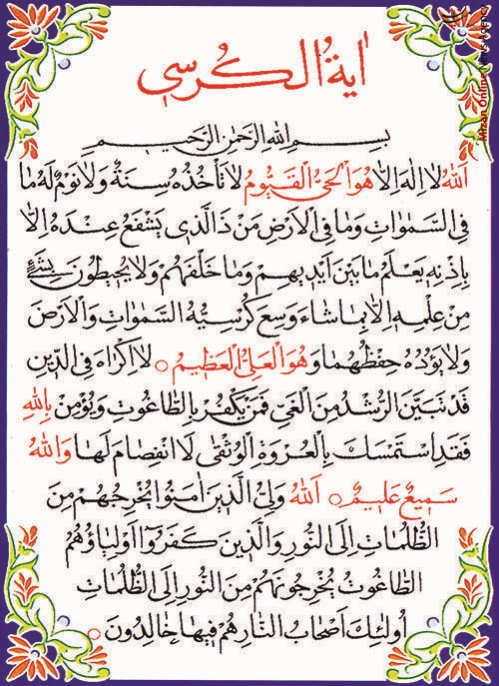 اٰيةُ الكُرسي
بِسمِ اللهِ الرَحمٰنِ الرَحيمِ
اَللهُ لا اِلٰهَ اِلاّ هُوَ الْحَيُّ الْقَيُّومُ لا تَأخُذُهُ سِنَةٌ وَلا نَوْمٌ لَهُ ما
فِي السَّمٰواتِ وَما فِي الْاَرْضِ مَنْ ذَا الَّذي يَشْفَعُ عِنْدَهُ اِلاّ
بِاِذْنِهِ يَعْلَمُ ما بَيْنَ اَيْديهِمْ وَما خَلْفَهُمْ وَلا يُحيطُونَ بِشَيْءٍ
مِنْ عِلْمِهِ اِلاّ بِما شاءَ وَسِعَ كُرْسِيُّهُ السَّمٰواتِ وَالْاَرْضَ
وَلا يَؤُدُهُ حِفْظُهُما وَهُوَ الْعَلِيُّ الْعَظيمُ ○ لا اِكْراهَ فِي الدّينِ
قَدْ تَبَيَّنَ الرُّشْدُ مِنَ الْغَيِّ فَمَنْ يَكْفُرْ بِالطّاغُوتِ وَيُؤْمِنْ بِاللهِ
فَقَدِ اسْتَمْسَكَ بِالْعُرْوَةِ الْوُثْقٰى لَا انْفِصامَ لَها وَاللهُ
سَميعٌ عَليمٌ ○ اَللهُ وَلِيُّ الَّذينَ اٰمَنُوا يُخْرِجُهُمْ مِنَ
الظُّلُماتِ اِلَى النُّورِ وَالَّذينَ كَفَرُوا اَوْلِياؤُهُمُ
الطّاغُوتُ يُخْرِجُونَهُمْ مِنَ النُّورِ اِلَى الظُّلُماتِ
اُولٰئِكَ اَصْحابُ النّارِ هُمْ فيها خالِدُونَ ○
Mizan Online